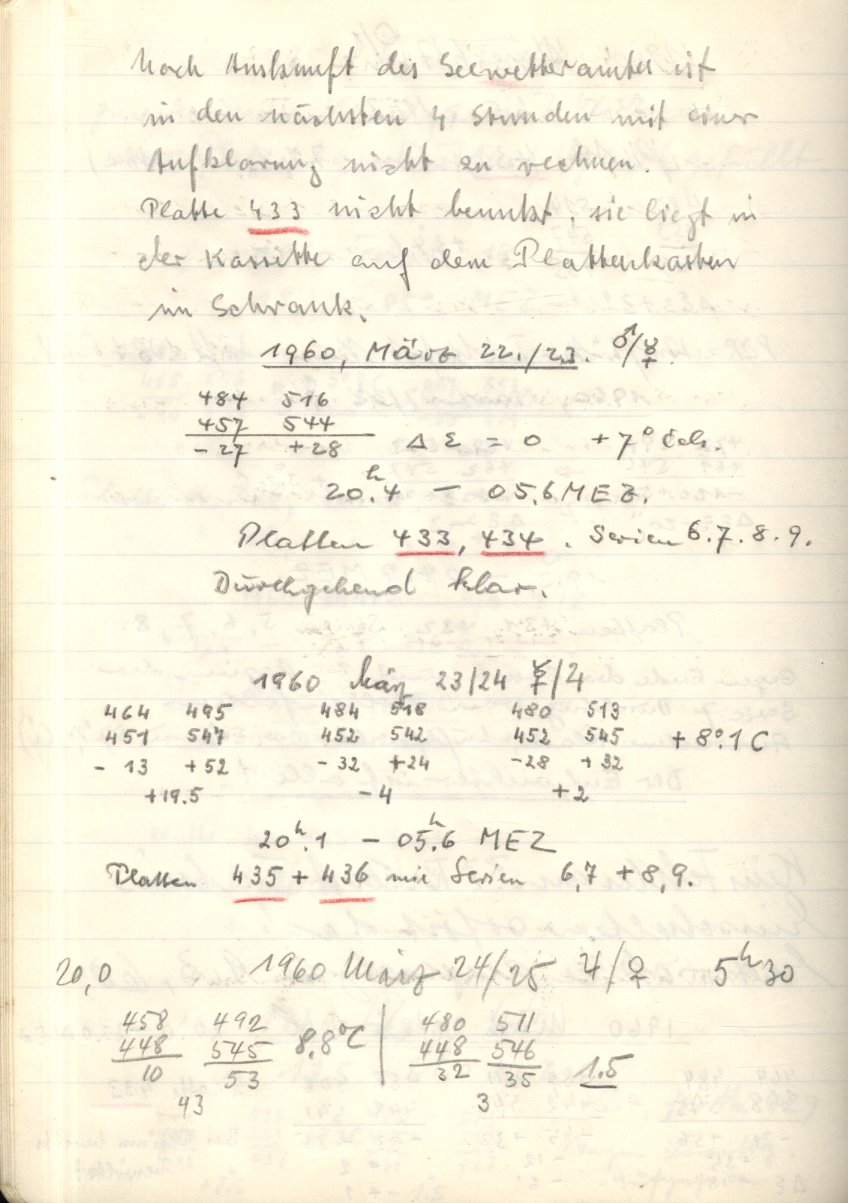 Nach Auskunft des Seewetteramtes ist
in den nächsten 4 Stunden mit einer
Aufklarung nicht zu rechnen.
Platte 433 nicht benutzt, sie liegt in
der Kassette auf dem Plattenkasten
im Schrank.
1960, März 22./23. ♂/☿
484 516
457 544
- 27 +28 Δ Σ = 0 +7°
20.4 h — 05.6 MEZ.
Platten 433, 434. Serien 6.7.8.9.
Durchgehend klar.
1960 März 23/24 ☿/♃
464 495 484 518 480 513
451 547 452 542 452 545 + 8°.1 C
- 13 +52 -32 +24 -28 +32
+19.5 -4 +2
20h.1 — 05h.6 MEZ
Platten 435 + 436 mit Serien 6,7 + 8,9.
20,0 1960 März 24/25 ♃/♀ 5h30
458 492 8.8°C 480 511
448 545 448 546
10 53 32 35 1.5
43 3